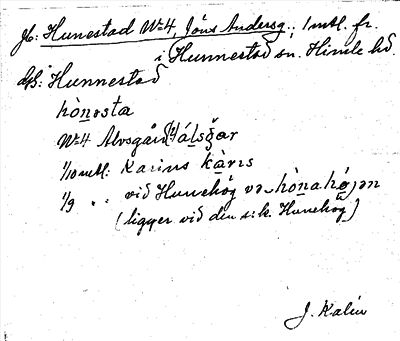 Jb: Hunestad No 4, Jöns Andersg; 1 mtl. fr.
i Hunnestad sn. Himle hd.
Hunnestad
hònesta
No 4 Alvsgård
1/10 mtl: Karins kàris
1/9 " " vid Hunehög hònahøjen
(ligger vid den s.k. Hunehög)
J. Kalén